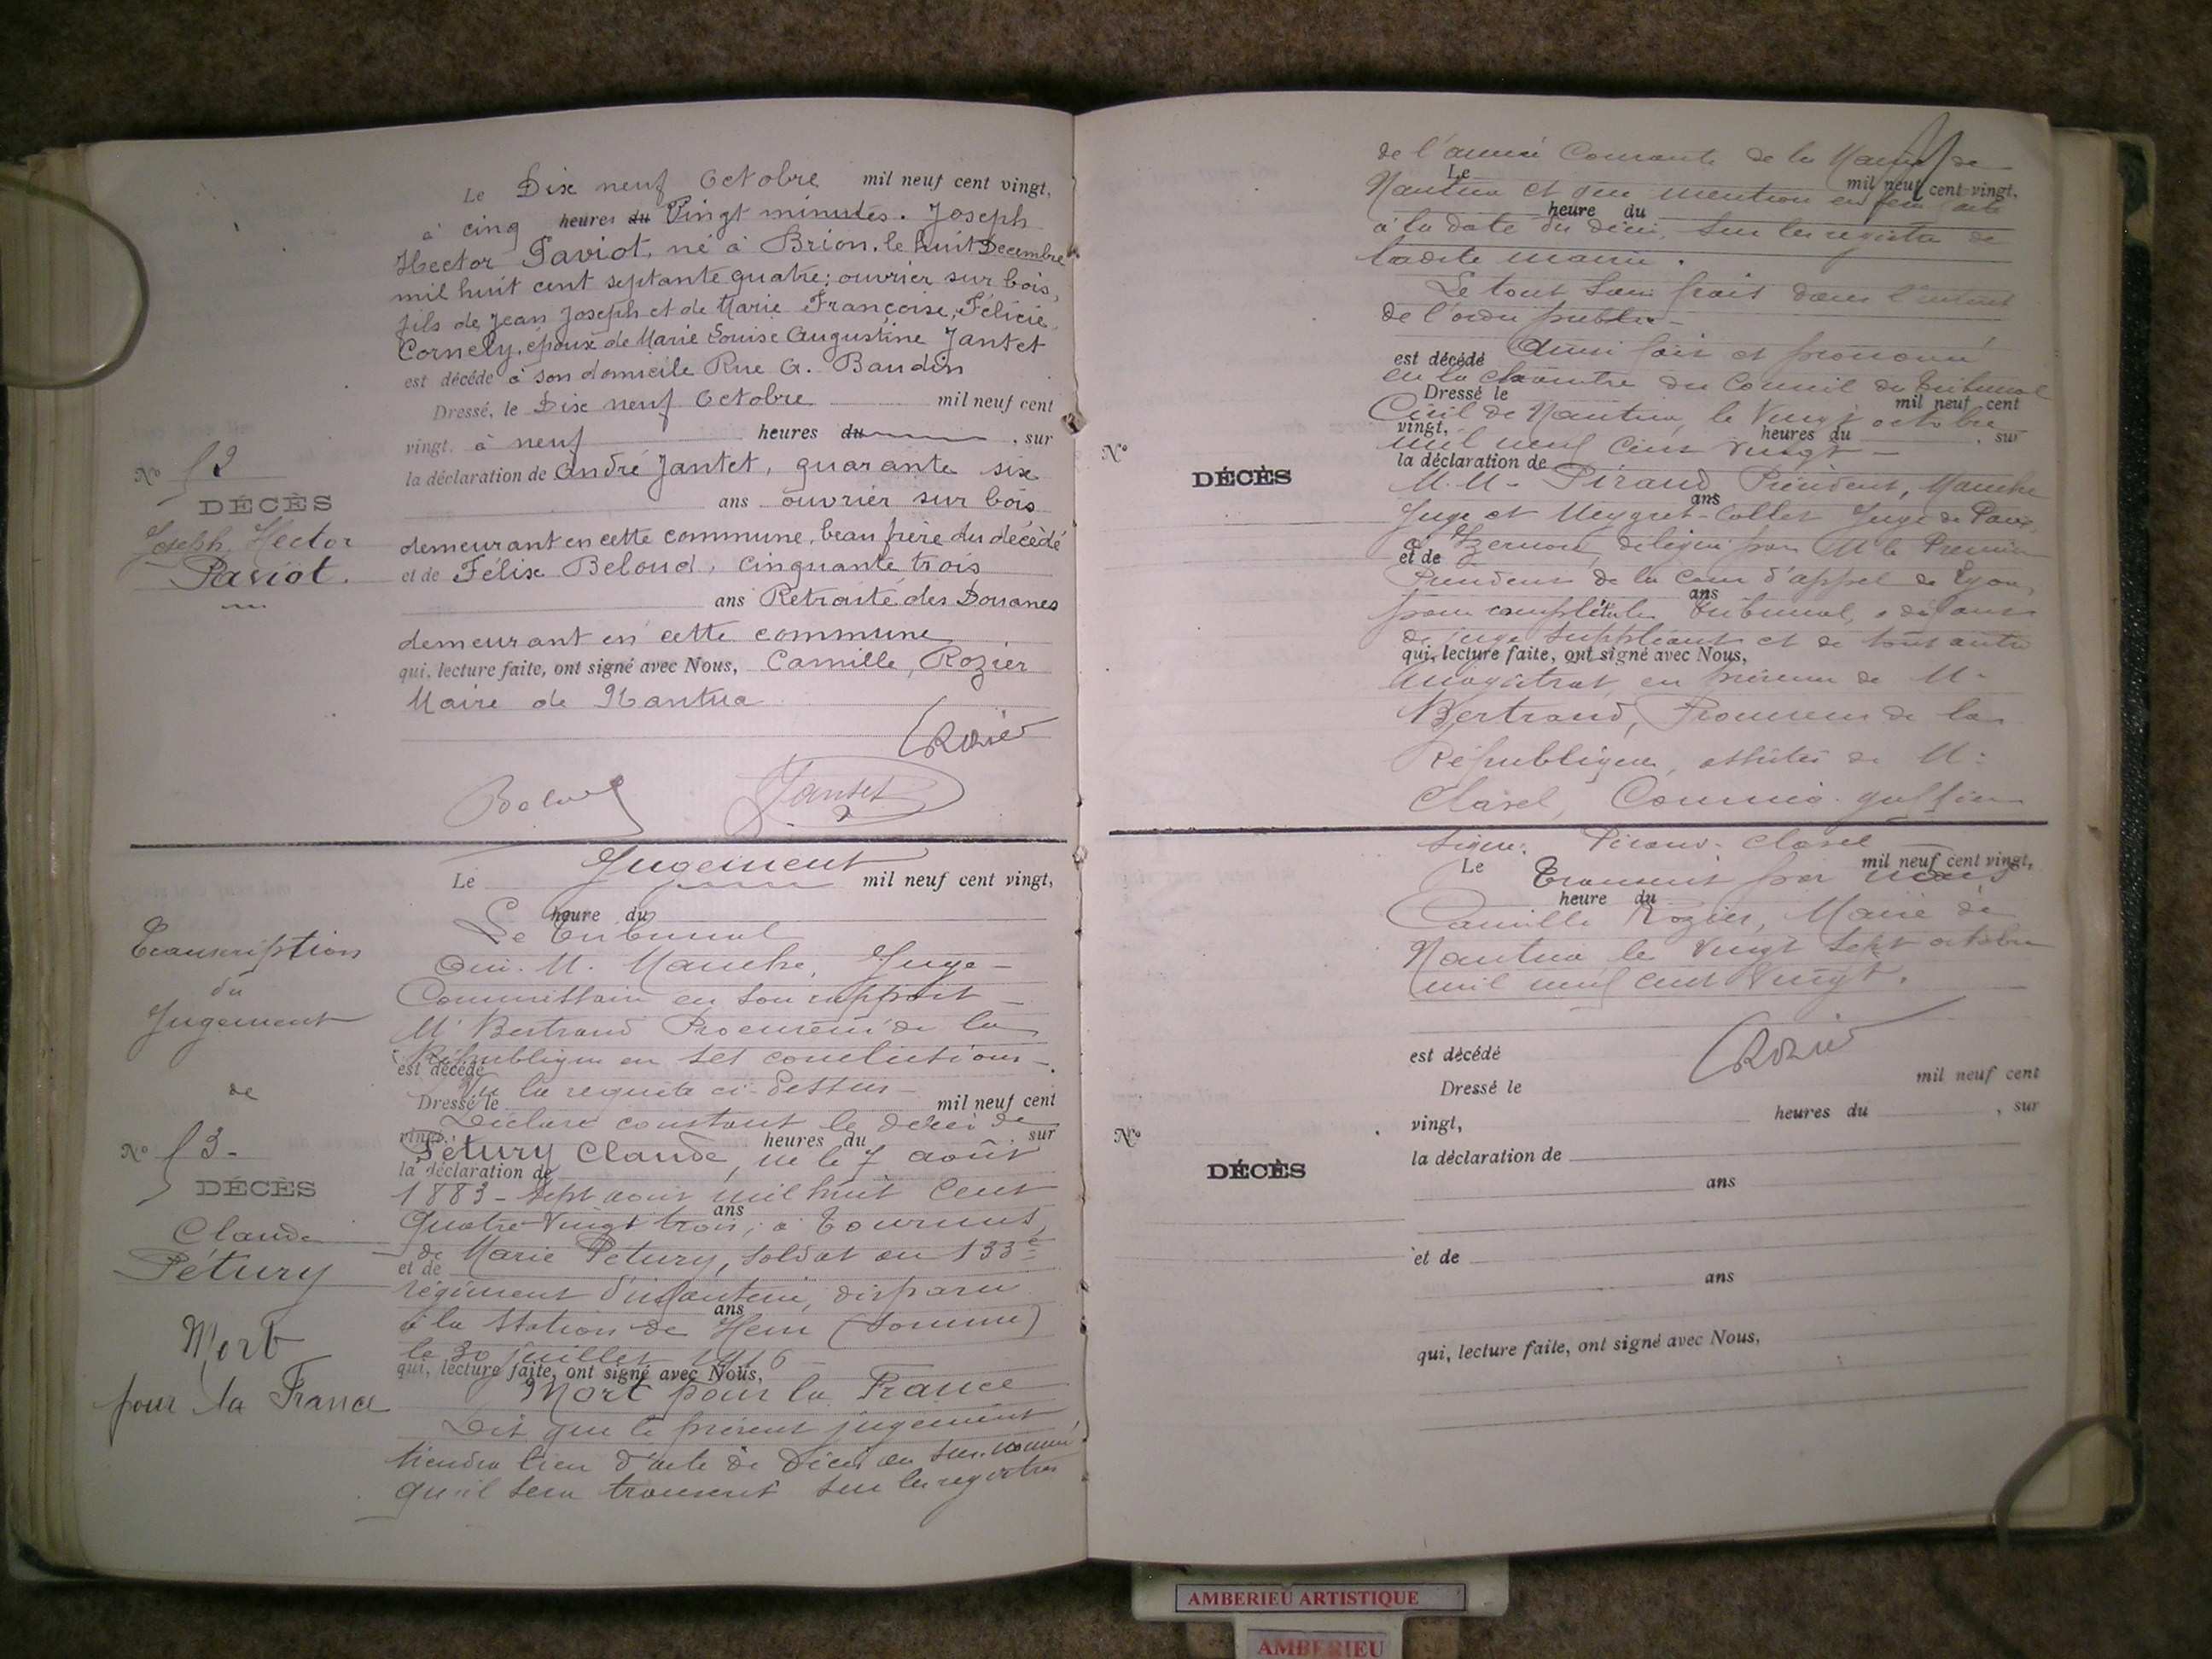 Le Dix neuf Octobre mil neuf cent vingt,
à cinq heures du Vingt minutes. Joseph
Hector Paviot, né à Brion, le huit Decembre
mil huit cent septante quatre; ouvrier sur bois,
fils de Jean Joseph et de Marie Françoise, Félicie
Cornely, époux de Marie Louise Augustine Jantet
est décédé à son domicile Rue A. Baudin
Dressé, le Dix neuf Octobre mil neuf cent
vingt, à neuf heures du , sur
la déclaration de André Jantet, quarante six
ans ouvrier sur bois
demeurant en cette commune, beau frère du décédé
et de Félix Beloud, cinquante trois
ans Retraité des Douanes
demeurant en cette commune
qui, lecture faite, ont signé avec Nous, Camille, Rozier
Maire de Nantua
CRozier
Beloud Jantet
No 52
DÉCÈS
Joseph, Hector
Paviot.
Jugement
Le mil neuf cent vingt,
heure du
Le Tribunal
Oui. M. Manche, Juge-
Commissaire en son rapport
M. Bertrand Procureur de la
République en ses conclusions
est décédé
Vu la requête ci-dessus
Dressé le mil neuf cent
Déclare constant le décès de
vingt, heures du , sur
Pétury Claude, né le 7 août
la déclaration de
1883 - sept août mil huit cent
ans
quatre-vingt trois, à Tournus,
de Marie Pétury, soldat au 133e
et de
régiment d'infanterie, disparu
ans
à la station de Hem (Somme)
le 30 juillet 1916
qui, lecture faite, ont signé avec Nous,
Mort pour la France
Dit que le présent jugement
tiendra lieu d'acte de décès au sus-nommé
qu'il sera transcrit sur les registres
Transcription
du
Jugement
de
No 53-
DÉCÈS
Claude
Pétury
Mort
pour la France
de l'année Courante de la Mairie de
Le mil neuf cent vingt,
Nantua et que mention en sera faite
heure du
à la date du décès, sur les registres de
ladite mairie.
Le tout sans frais dans l'intérêt
de l'ordre public-
Ainsi fait et prononcé
est décédé
en la chambre du Conseil du Tribunal
Dressé le mil neuf cent
Civil de Nantua, le Vingt octobre
vingt, heures du , sur
mil neuf cent vingt -
la déclaration de
M.M. Piraud Président, Manche
ans
Juge et Meygret-Collet Juge de Paix
et de
à Izernore, délégué par M. le Premier
Président de la Cour d'appel de Lyon,
ans
pour compléter le Tribunal, à défaut
de juge suppléant et de tout autre
qui, lecture faite, ont signé avec Nous,
Magistrat en présence de M.
Bertrand, Procureur de la
République, assistés de M.
Clavel, Commis-greffier
signé: Piraud. Clavel
Le mil neuf cent vingt,
Transcrit par nous
heure du
Camille Rozier, Maire de
Nantua le Vingt sept octobre
mil neuf cent Vingt.
CRozier
est décédé
Dressé le mil neuf cent
vingt, heures du , sur
la déclaration de
ans
et de
ans
qui, lecture faite, ont signé avec Nous,
No
DÉCÈS
No
DÉCÈS
AMBERIEU ARTISTIQUE
AMBERIEU